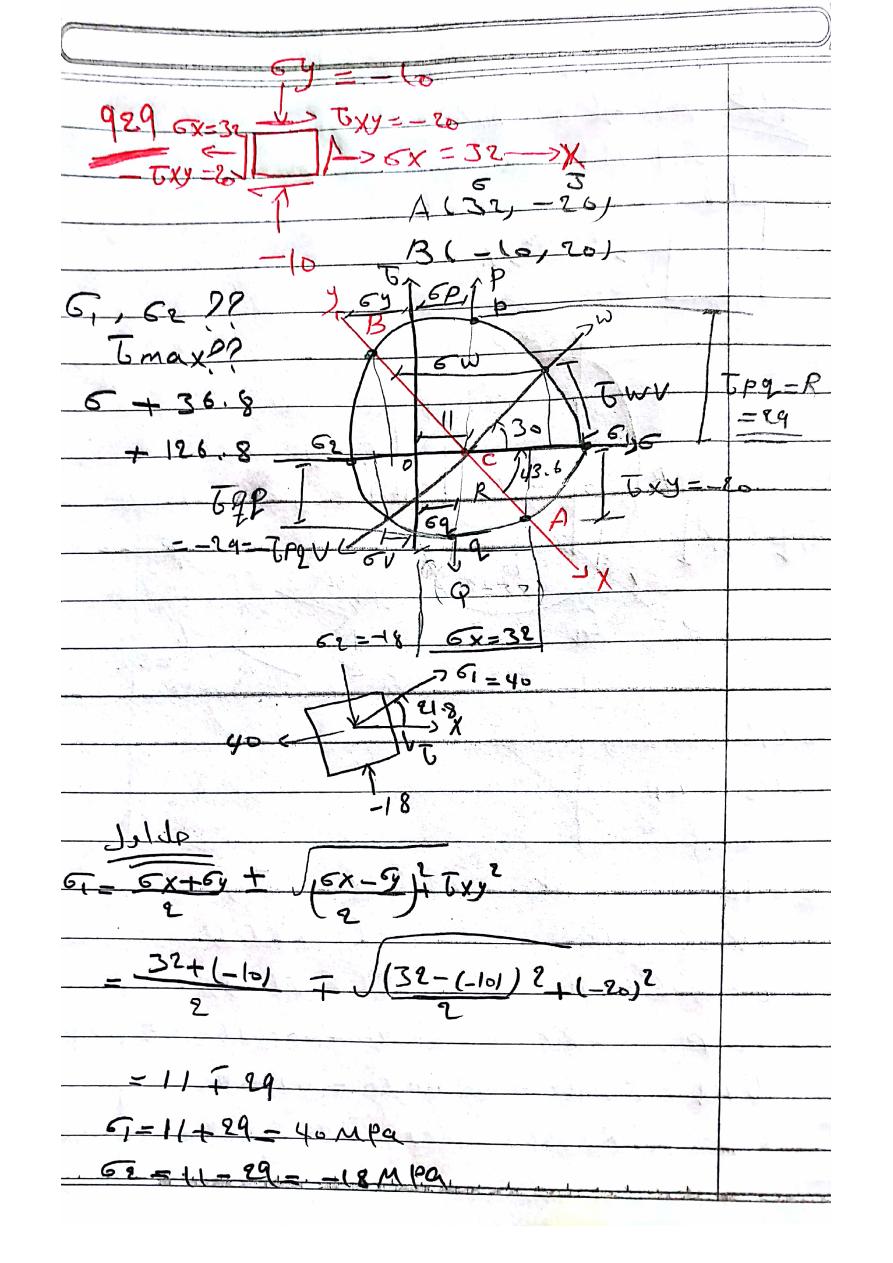 σy = -10
929 σx=32 τxy=-20
-τxy=20 σx = 32 → X
σ τ
A (32, -20)
-10
B (-10, 20)
σ1, σ2 ??
τmax??
σ + 36.8
+ 126.8
τ P
y σy σp P
B w
σw
τwv
τpq=R
=29
11 30
σ2 0 C σ1 σ
43.6
R
τqp τxy=-20
σq A
= -29=-τpq V σv q
X
Q
σ2=-18 σx=32
σ1=40
21.8
X
40 τ
-18
σ1= σx+σy/2 ± √(σx-σy/2)²+τxy²
= 32+(-10)/2 ∓ √(32-(-10)/2)2+(-20)2
= 11 ∓ 29
σ1=11+29=40MPa
σ2=11-29=-18MPa